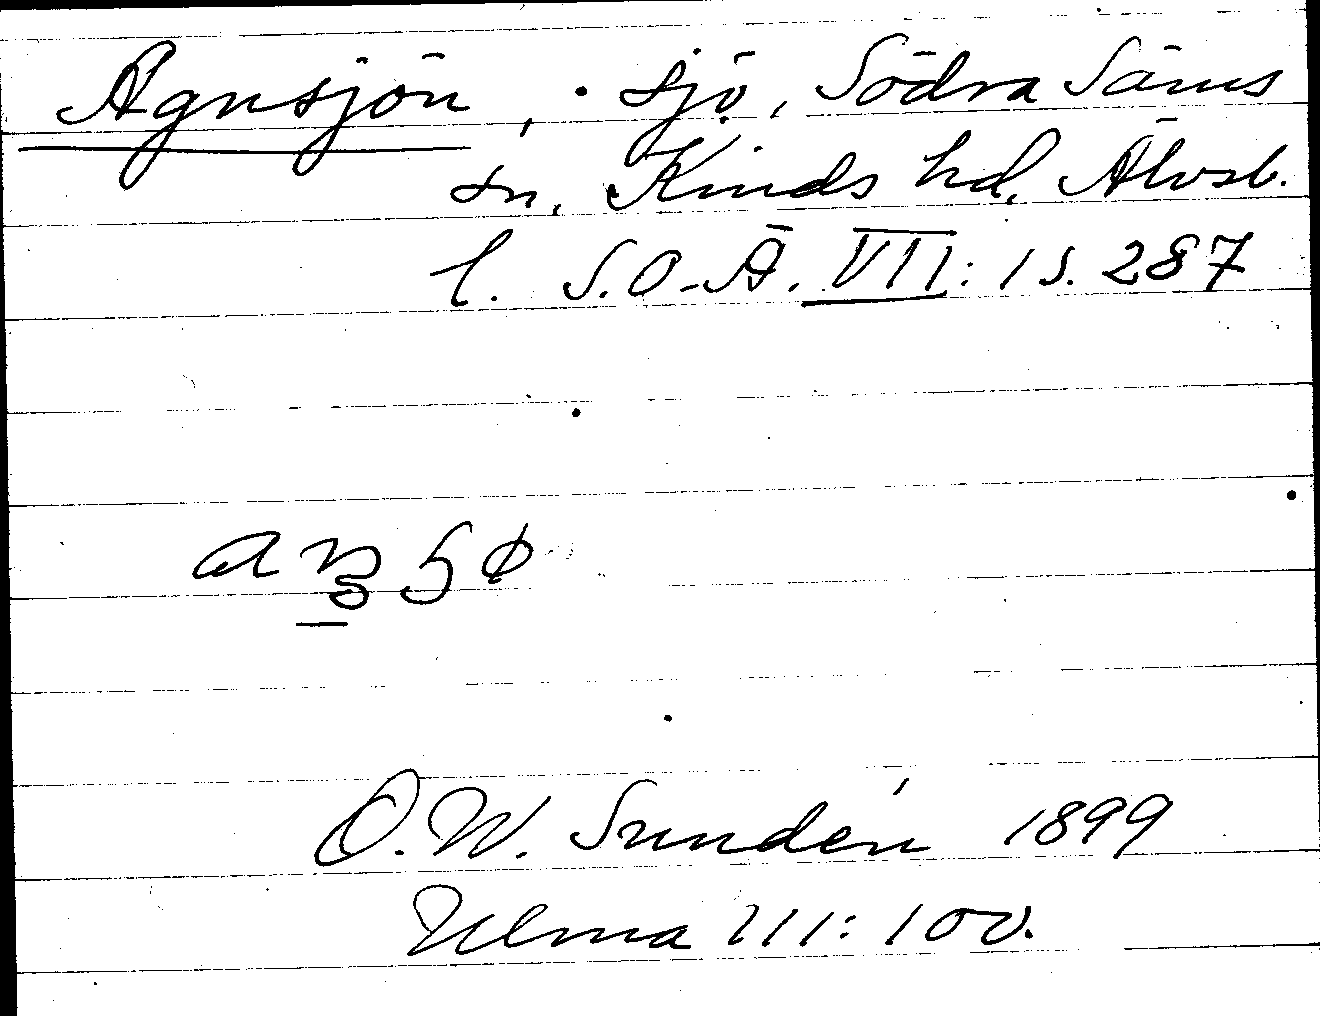 Agnsjön, sjö, Södra Säms
sn, Kinds hd, Älvsb.
l. S.O.-Ä. VII:1 s. 287
O.W. Sundén 1899
Ulma 111:100.